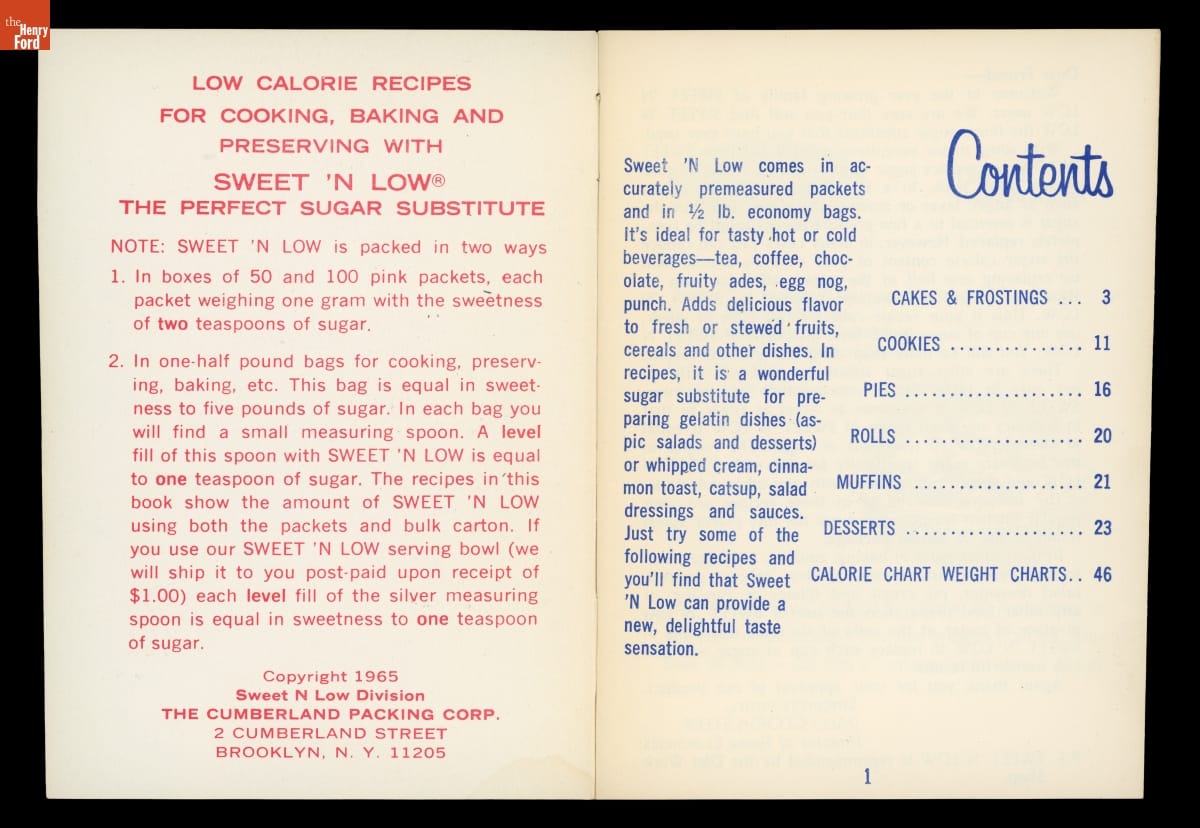 the
Henry
Ford
LOW CALORIE RECIPES
FOR COOKING, BAKING AND
PRESERVING WITH
SWEET 'N LOW®
THE PERFECT SUGAR SUBSTITUTE
NOTE: SWEET 'N LOW is packed in two ways
1. In boxes of 50 and 100 pink packets, each
packet weighing one gram with the sweetness
of two teaspoons of sugar.
2. In one-half pound bags for cooking, preserv-
ing, baking, etc. This bag is equal in sweet-
ness to five pounds of sugar. In each bag you
will find a small measuring spoon. A level
fill of this spoon with SWEET 'N LOW is equal
to one teaspoon of sugar. The recipes in this
book show the amount of SWEET 'N LOW
using both the packets and bulk carton. If
you use our SWEET 'N LOW serving bowl (we
will ship it to you post-paid upon receipt of
$1.00) each level fill of the silver measuring
spoon is equal in sweetness to one teaspoon
of sugar.
Copyright 1965
Sweet N Low Division
THE CUMBERLAND PACKING CORP.
2 CUMBERLAND STREET
BROOKLYN, N. Y. 11205
Sweet 'N Low comes in ac-
curately premeasured packets
and in ½ lb. economy bags.
It's ideal for tasty hot or cold
beverages—tea, coffee, choc-
olate, fruity ades, egg nog,
punch. Adds delicious flavor
to fresh or stewed fruits,
cereals and other dishes. In
recipes, it is a wonderful
sugar substitute for pre-
paring gelatin dishes (as-
pic salads and desserts)
or whipped cream, cinna-
mon toast, catsup, salad
dressings and sauces.
Just try some of the
following recipes and
you'll find that Sweet
'N Low can provide a
new, delightful taste
sensation.
Contents
CAKES & FROSTINGS ... 3
COOKIES ............... 11
PIES .................... 16
ROLLS .................... 20
MUFFINS ................... 21
DESSERTS .................... 23
CALORIE CHART WEIGHT CHARTS.. 46
1